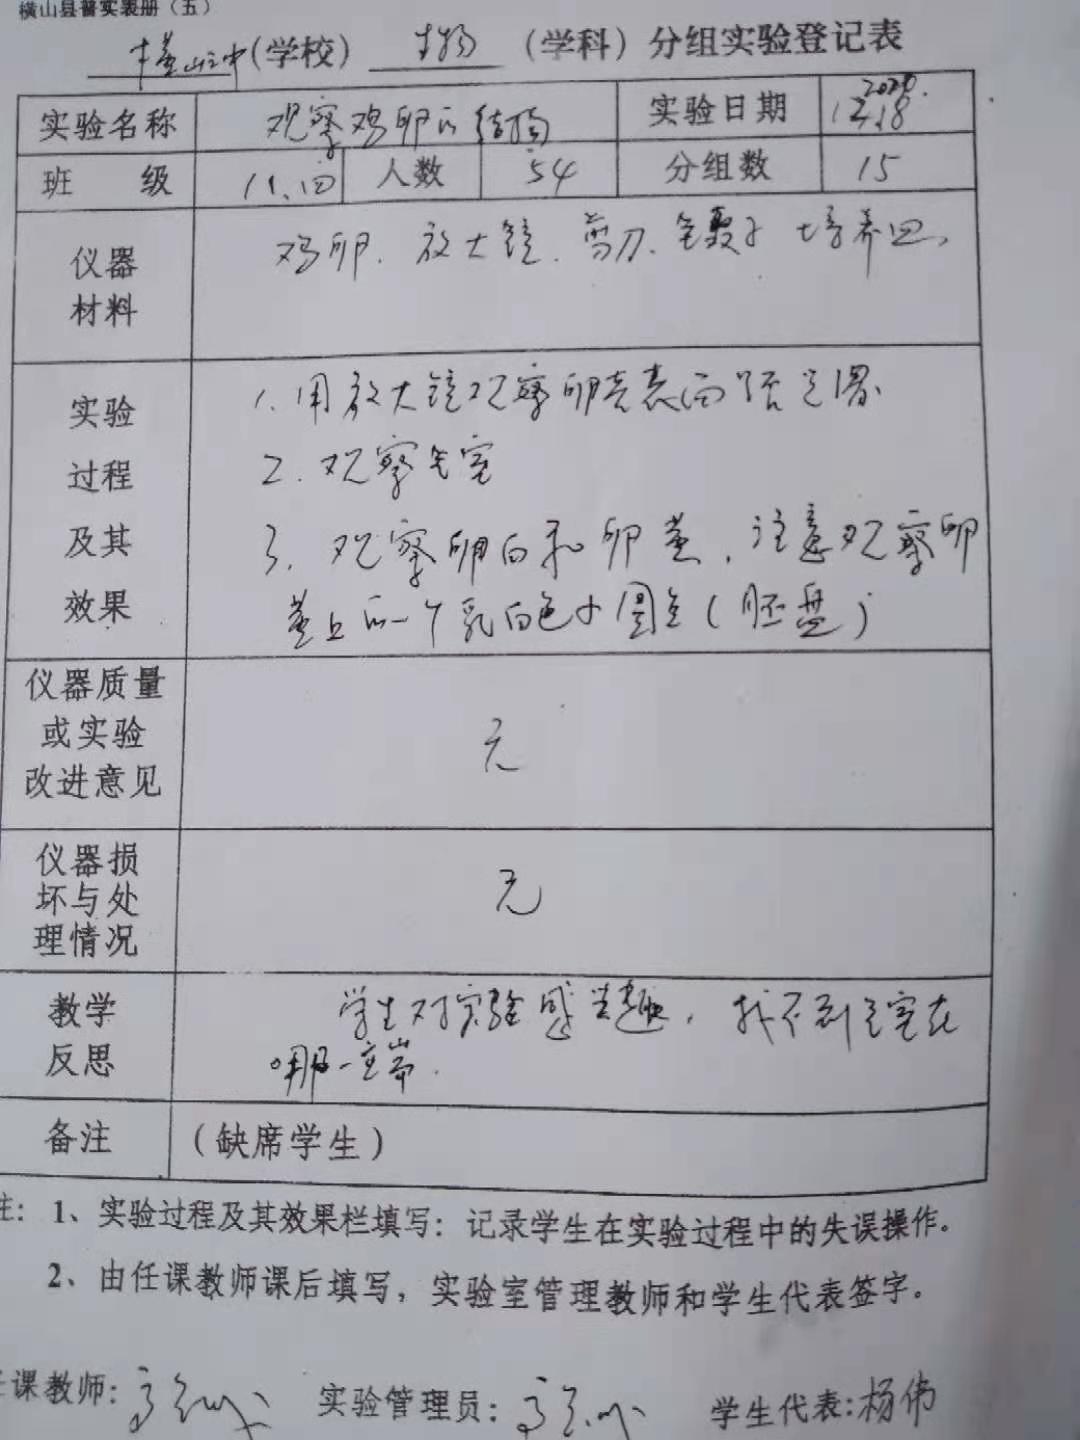 横山县普实表册（五）
(学校) 生物 （学科）分组实验登记表
实验名称 观察鸡卵的结构 实验日期 2020. 12.18
班 级 人数 54 分组数 15
仪器材料 鸡卵. 放大镜. 剪刀. 镊子 培养皿,
实验过程及其效果 1. 用放大镜观察卵壳表面
2. 观察气室
3. 观察卵白和卵黄, 注意观察卵
黄上的一个乳白色小圆点（胚盘）
仪器质量或实验改进意见 无
仪器损坏与处理情况 无
教学反思 学生对实验感兴趣, 找不到气室在
哪一端.
备注 （缺席学生）
注: 1、实验过程及其效果栏填写: 记录学生在实验过程中的失误操作。
2、由任课教师课后填写, 实验室管理教师和学生代表签字。
任课教师: 实验管理员: 学生代表: 杨伟